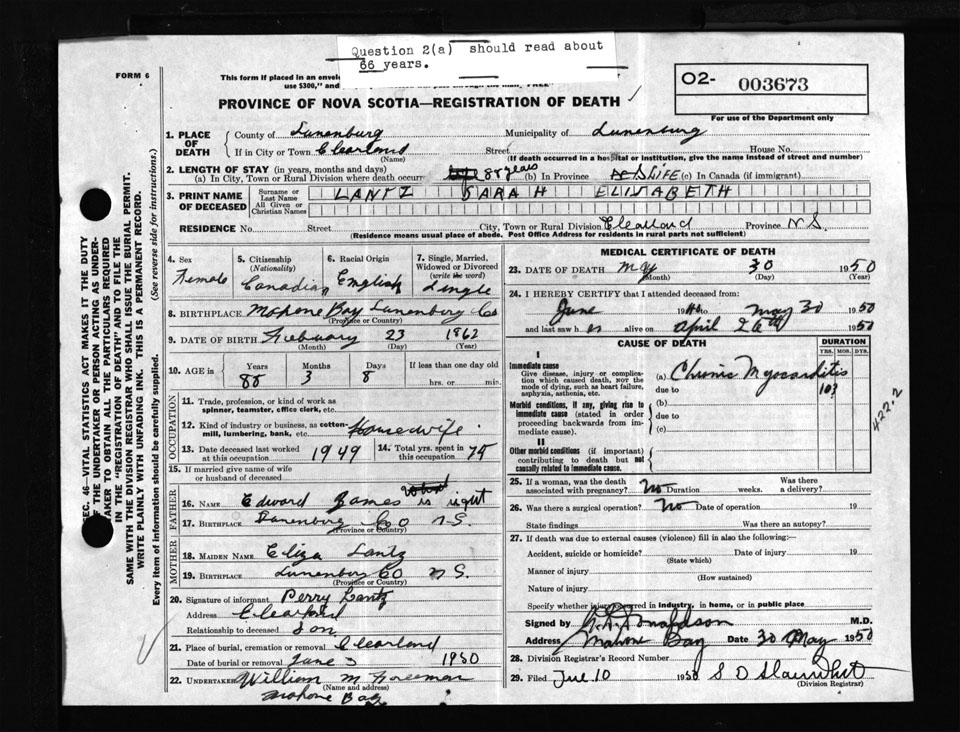 Question 2(a) should read about
66 years.
FORM 6
This form if placed in an envelo
use $300," and
O2- 003673
For use of the Department only
PROVINCE OF NOVA SCOTIA—REGISTRATION OF DEATH
1. PLACE OF DEATH
County of Lunenburg Municipality of Lunenburg
If in City or Town Clearland Street House No.
(Name) (If death occurred in a hospital or institution, give the name instead of street and number)
2. LENGTH OF STAY (in years, months and days)
(a) In City, Town or Rural Division where death occurr 88 years (b) In Province LIFE (c) In Canada (if immigrant)
3. PRINT NAME OF DECEASED
Surname or Last Name
All Given or Christian Names
LANTZ SARAH ELISABETH
RESIDENCE No. Street City, Town or Rural Division Clearland Province N S.
(Residence means usual place of abode. Post Office Address for residents in rural parts not sufficient)
4. Sex
Female
5. Citizenship
(Nationality)
Canadian
6. Racial Origin
English
7. Single, Married,
Widowed or Divorced
(write the word)
Single
8. BIRTHPLACE Mahone Bay Lunenburg Co
(Province or Country)
9. DATE OF BIRTH February 23 1862
(Month) (Day) (Year)
10. AGE in
Years Months Days If less than one day old
88 3 8 hrs. or min.
OCCUPATION
11. Trade, profession, or kind of work as
spinner, teamster, office clerk, etc.
12. Kind of industry or business, as cotton-
mill, lumbering, bank, etc. Housewife
13. Date deceased last worked
at this occupation 1949
14. Total yrs. spent in
this occupation 75
15. If married give name of wife
or husband of deceased
FATHER
16. NAME Edward James is right
17. BIRTHPLACE Lunenburg Co N.S.
(Province or Country)
MOTHER
18. MAIDEN NAME Eliza Lantz
19. BIRTHPLACE Lunenburg Co N S.
(Province or Country)
20. Signature of informant Perry Lantz
Address Clearland
Relationship to deceased Son
21. Place of burial, cremation or removal Clearland
Date of burial or removal June 3 1950
22. UNDERTAKER William M Foreman
(Name and address)
Mahone Bay
MEDICAL CERTIFICATE OF DEATH
23. DATE OF DEATH May 30 1950
(Month) (Day) (Year)
24. I HEREBY CERTIFY that I attended deceased from:
June 19 to May 30 1950
and last saw h er alive on April 26th 1950
CAUSE OF DEATH
DURATION
YRS. MOS. DYS.
I
Immediate cause
Give disease, injury or compli-
cation which caused death, not the
mode of dying, such as heart failure,
asphyxia, asthenia, etc.
(a) Chronic Myocarditis
due to
Morbid conditions, if any, giving rise to
immediate cause (stated in order
proceeding backwards from im-
mediate cause).
(b)
due to
(c)
II
Other morbid conditions (if important)
contributing to death but not
causally related to immediate cause.
422.2
25. If a woman, was the death
associated with pregnancy? No Duration weeks. Was there
a delivery?
26. Was there a surgical operation? No Date of operation 19
State findings Was there an autopsy?
27. If death was due to external causes (violence) fill in also the following:—
Accident, suicide or homicide? Date of injury 19
(State which)
Manner of injury
(How sustained)
Nature of injury
Specify whether injury occurred in industry, in home, or in public place
Signed by Donaldson M.D.
Address Mahone Bay Date 30 May 1950
28. Division Registrar's Record Number
29. Filed 10 1950 S D Slauenwhite
(Division Registrar)
SEC. 46—VITAL STATISTICS ACT MAKES IT THE DUTY
OF THE UNDERTAKER OR PERSON ACTING AS UNDER-
TAKER TO OBTAIN ALL THE PARTICULARS REQUIRED
IN THE "REGISTRATION OF DEATH" AND TO FILE THE
SAME WITH THE DIVISION REGISTRAR WHO SHALL ISSUE THE BURIAL PERMIT.
WRITE PLAINLY WITH UNFADING INK. THIS IS A PERMANENT RECORD.
Every item of information should be carefully supplied. (See reverse side for instructions.)